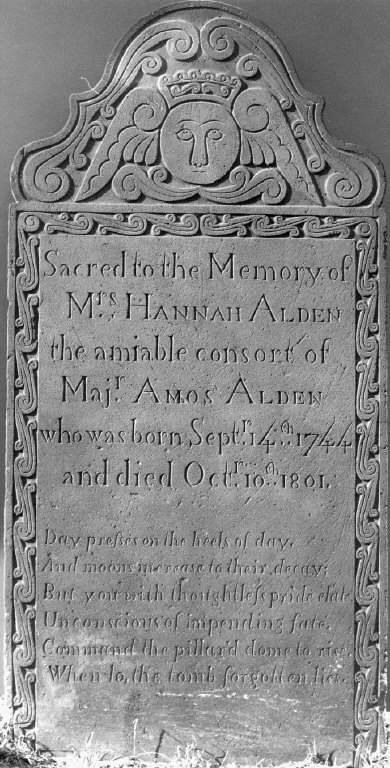 Sacred to the Memory of
Mrs. HANNAH ALDEN
the amiable consort of
Majr. AMOS ALDEN
who was born Septr. 14th. 1744
and died Octr. 10th. 1801.
Day presses on the heels of day,
And moons increase to their decay;
But you with thoughtless pride elate
Unconscious of impending fate,
Command the pillar'd dome to rise,
When lo, the tomb forgotten lies.